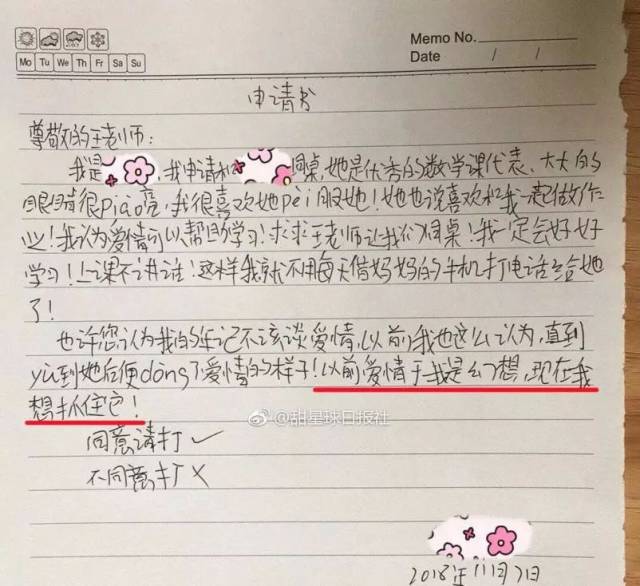 Memo No.
Mo Tu We Th Fr Sa Su
Date / /
申请书
尊敬的王老师:
我是 ,我申请和 同桌,她是优秀的数学课代表、大大的
眼睛很piào亮,我很喜欢她pèi服她!她也说喜欢和我一起做作
业!我认为爱情可以帮助学习!求求王老师让我们同桌!我一定会好好
学习!上课不讲话!这样我就不用每天借妈妈的手机打电话给她
了!
也许您认为我的年记不该谈爱情,以前我也这么认为,直到
yù到她后便dǒng了爱情的样子!以前爱情于我是幻想,现在我
想抓住它!
@甜星球日报社
同意请打✓
不同意打×
2018年11月7日